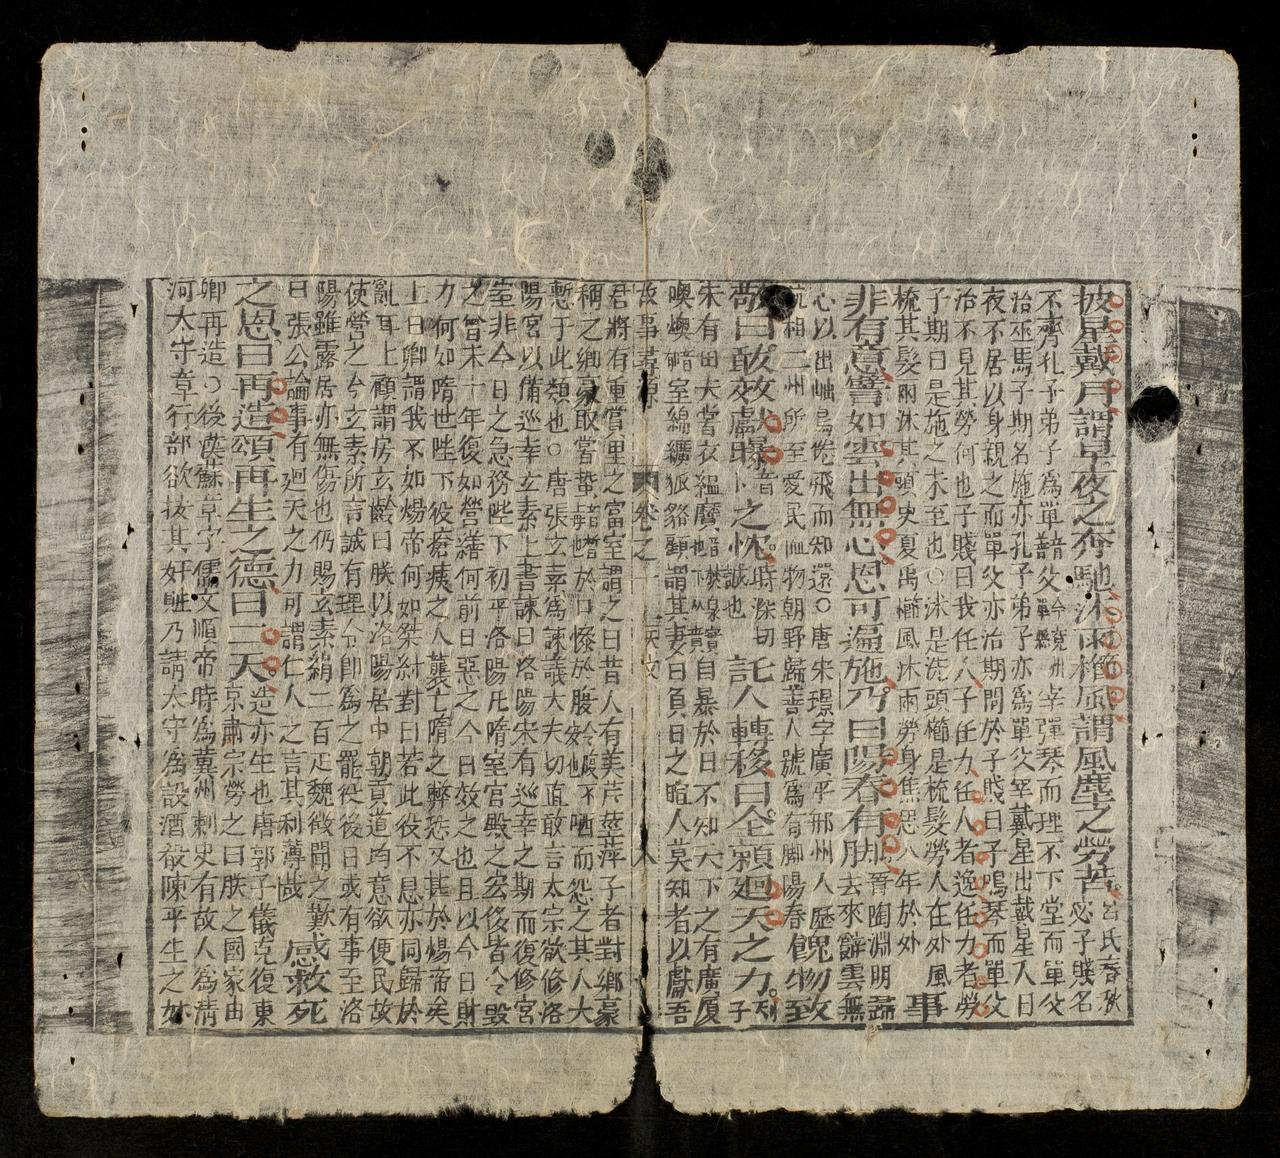 披星戴月謂早夜之奔馳沐雨櫛風謂風塵之勞苦呂氏春秋
不齊孔子弟子為單父宰彈琴而理不下堂而單父
治巫馬子期名施亦孔子弟子亦為單父宰戴星出戴星入日
夜不居以身親之而單父亦治期問於子賤曰子鳴琴而單父
治不見其勞何也子賤曰我任人子任力任人者逸任力者勞
子期曰是施之未至也○沐是洗頭櫛是梳髮勞人在外風
梳其髮雨沐其頭史夏禹櫛風沐雨勞身焦思八年於外 事
非有意譬如雲出無心恩可遍施乃曰陽春有脚晉陶淵明歸去來辭雲無
心以出岫鳥倦飛而知還○唐宋璟字廣平邢州人歷
杭相二州所至愛民恤物朝野歸善人號為有脚陽春 餽物致
敬曰敢效獻曝之忱 託人轉移曰全賴廻天之力
朱有田夫常衣縕黂 自暴於日不知天下之有廣厦
燠室綿纊狐貉顧謂其妻曰負日之暄人莫知者以獻吾
故事尋源 卷之
君將有重賞里之富室謂之曰昔人有美芹萍子者對鄉豪
稱之鄉豪取嘗蜇於口慘於腹 哂而怨之其人大
慙于此類也○唐張玄素為諫議大夫切直敢言太宗欲修洛
陽宮以備巡幸玄素上書諫曰洛陽宋有巡幸之期而復修宮
室非今日之急務陛下初平洛陽凡隋室宮殿之宏侈皆令毀
之曾未十年復如營繕何前日惡之今日效之也且以今日財
力何如隋世陛下役瘡痍之人襲亡隋之弊恐又甚於煬帝矣
上曰卿謂我不如煬帝何如桀紂對曰若此役不息亦同歸於
亂耳上顧謂房玄齡曰朕以洛陽居中朝貢道均意欲便民故
使營之今玄素所言誠有理令卽為之罷役後日或有事至洛
陽雖露居亦無傷也仍賜玄素絹二百疋魏徵聞之歎
曰張公論事有廻天之力可謂仁人之言其利薄哉 感救死
之恩曰再造頌再生之德曰二天造亦生也唐郭子儀克復東
京肅宗勞之曰朕之國家由
卿再造○後漢蘇章字儒文順帝時為冀州刺史有故人為清
河太守章行部欲按其奸贓乃請太守為設酒殽陳平生之好